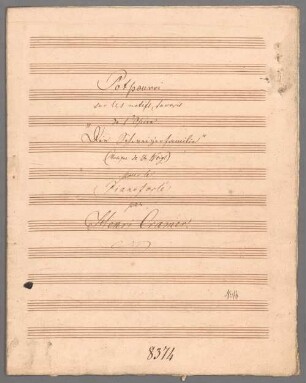 Potpourri
sur les motifs favoris
de l'Opéra
"Die Schweizerfamilie"
(Musique de
pour le
Pianoforte
par
Henri Cramer
8374